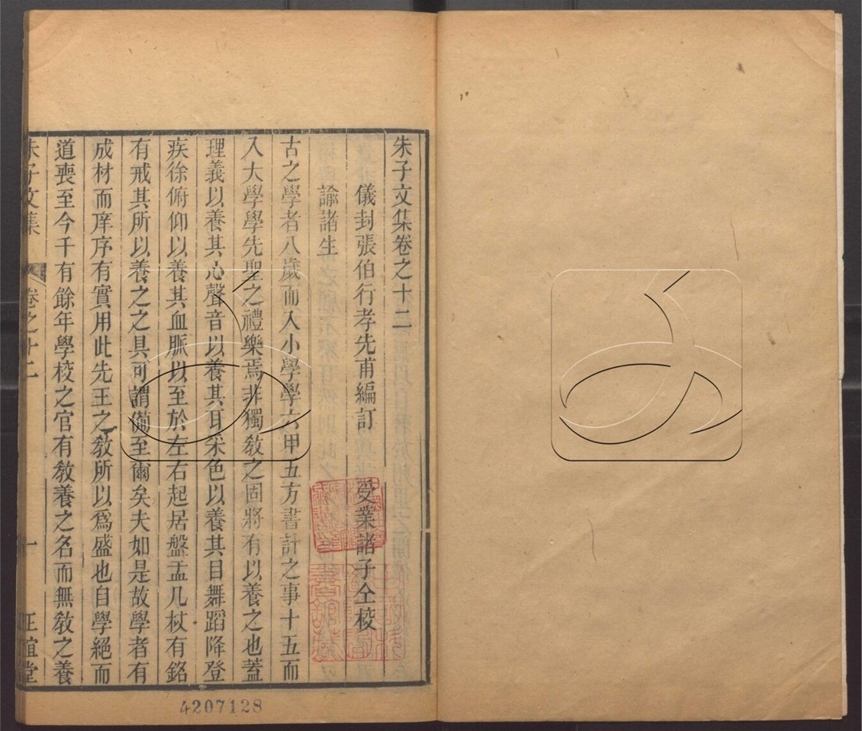 朱子文集卷之十二
儀封張伯行孝先甫編訂 受業諸子仝校
諭諸生
古之學者八歲而入小學學六甲五方書計之事十五而
入大學學先聖之禮樂焉非獨敎之固將有以養之也蓋
理義以養其心聲音以養其耳采色以養其目舞蹈降登
疾徐俯仰以養其血脈以至於左右起居盤盂几杖有銘
有戒其所以養之之具可謂備至爾矣夫如是故學者有
成材而庠序有實用此先王之敎所以爲盛也自學絕而
道喪至今千有餘年學校之官有敎養之名而無敎之養
朱子文集 卷之十二 一 正誼堂
4207128